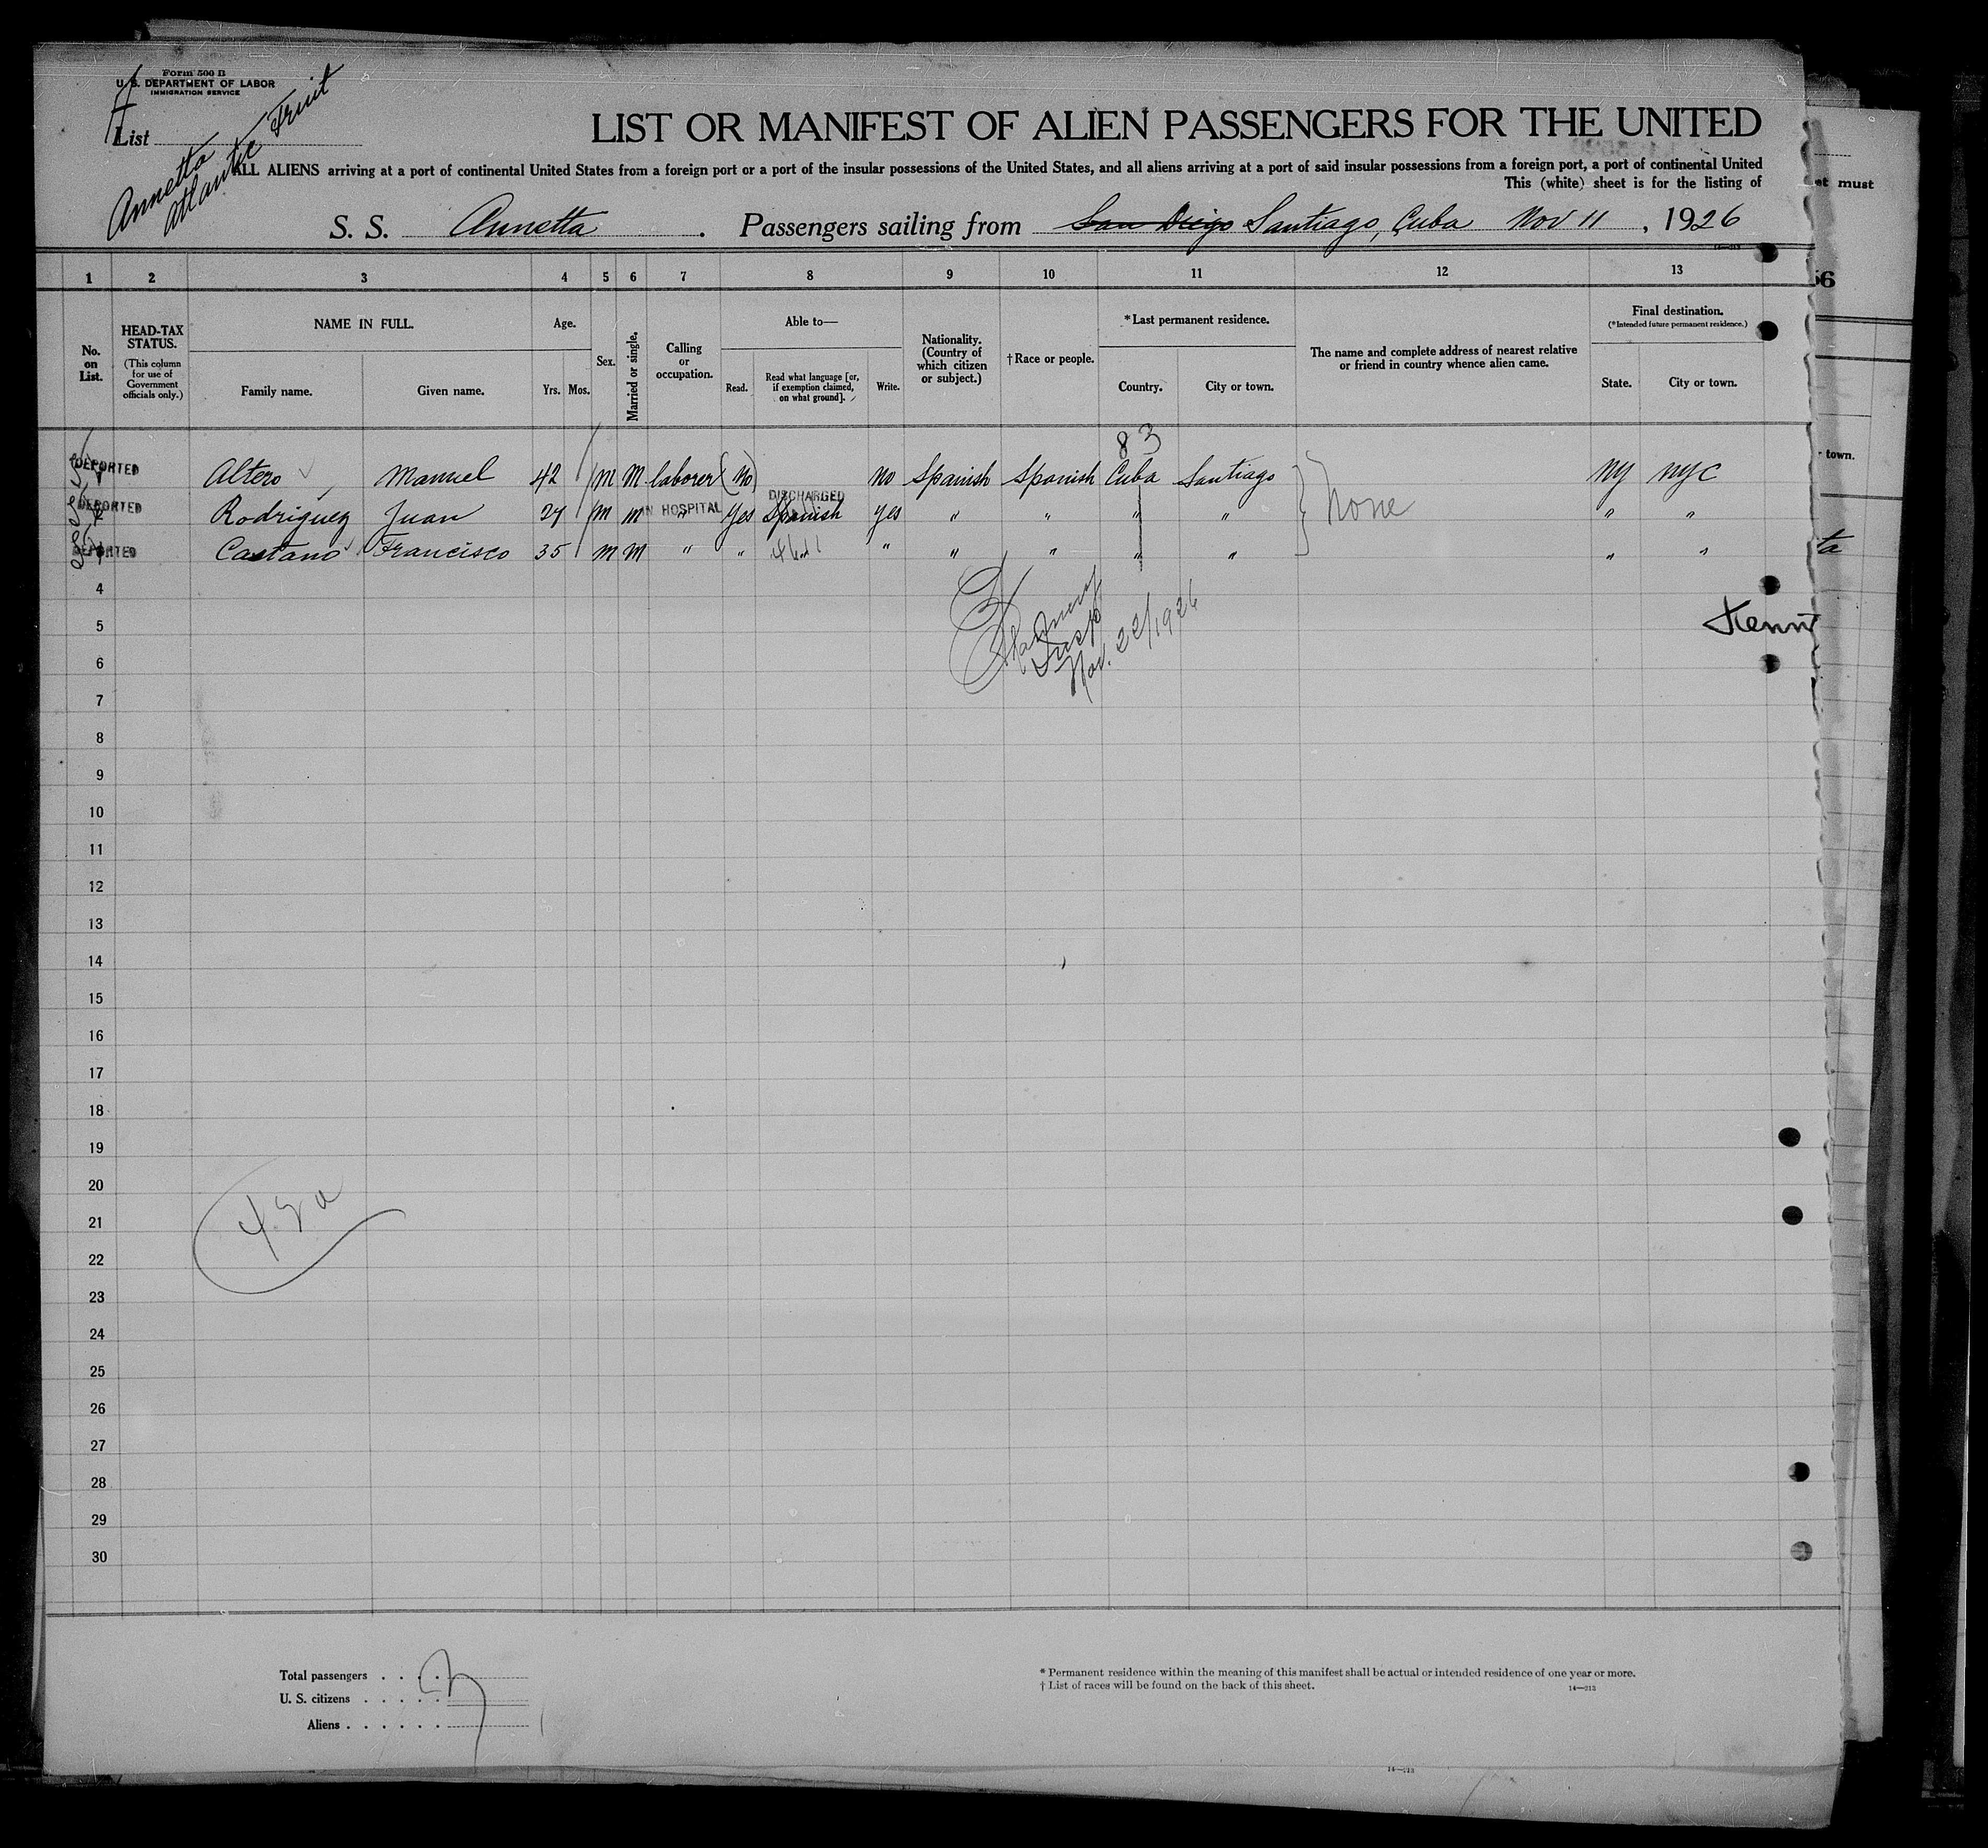 Form 500 B
U. S. DEPARTMENT OF LABOR
IMMIGRATION SERVICE
List
Annetta
Atlantic Fruit
LIST OR MANIFEST OF ALIEN PASSENGERS FOR THE UNITED
ALL ALIENS arriving at a port of continental United States from a foreign port or a port of the insular possessions of the United States, and all aliens arriving at a port of said insular possessions from a foreign port, a port of continental United
This (white) sheet is for the listing of
must
S. S. Annetta . Passengers sailing from San Diego Santiago, Cuba Nov 11 , 1926
1 2 3 4 5 6 7 8 9 10 11 12 13
No. on List.
HEAD-TAX STATUS.
(This column for use of Government officials only.)
NAME IN FULL.
Family name. Given name.
Age.
Yrs. Mos.
Sex.
Married or single.
Calling or occupation.
Able to—
Read.
Read what language [or, if exemption claimed, on what ground].
Write.
Nationality. (Country of which citizen or subject.)
†Race or people.
*Last permanent residence.
Country. City or town.
The name and complete address of nearest relative or friend in country whence alien came.
Final destination.
(*Intended future permanent residence.)
State. City or town.
town.
83
DEPORTED Altero Manuel 42 m M laborer (No) No Spanish Spanish Cuba Santiago NY NYC
DISCHARGED
DEPORTED Rodriguez Juan 27 m m " IN HOSPITAL Yes Spanish yes " " " " None " "
DEPORTED Castano Francisco 35 m m " " " " " " " " " "
ta
4
5
6
Nov. 22/1926
7
8
9
10
11
12
13
14
15
16
17
18
19
20
21
22
23
24
25
26
27
28
29
30
Total passengers
U. S. citizens
Aliens
3
* Permanent residence within the meaning of this manifest shall be actual or intended residence of one year or more.
† List of races will be found on the back of this sheet.
14—213
14—213